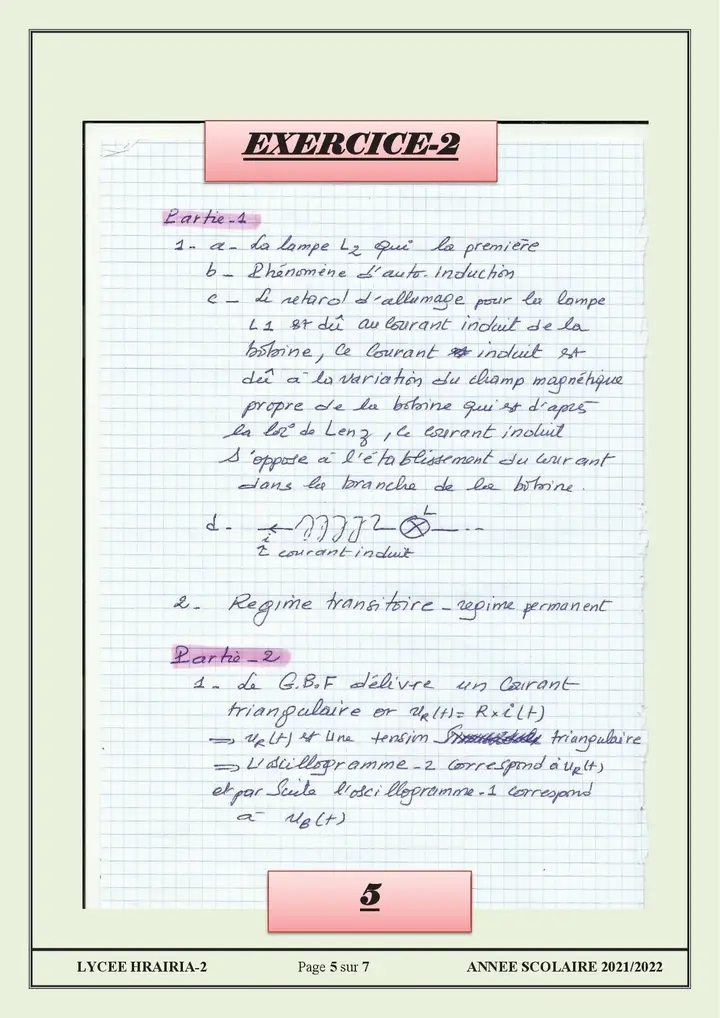 EXERCICE-2
Partie-1
1- a- La lampe L2 qui la première
b- Phénomène d'auto-induction
c- Le retard d'allumage pour la lampe
L1 est dû au courant induit de la
bobine, ce courant induit est
dû à la variation du champ magnétique
propre de la bobine qui est d'après
la loi de Lenz, le courant induit
s'oppose à l'établissement du courant
dans la branche de la bobine.
d- L
i
i courant induit
2- Regime transitoire - regime permanent
Partie-2
1- Le G.B.F délivre un courant
triangulaire or uR(t) = R x i(t)
⇒ uR(t) est une tension triangulaire
⇒ L'oscillogramme-2 correspond à uR(t)
et par suite l'oscillogramme-1 correspond
à uB(t)
5
LYCEE HRAIRIA-2 Page 5 sur 7 ANNEE SCOLAIRE 2021/2022